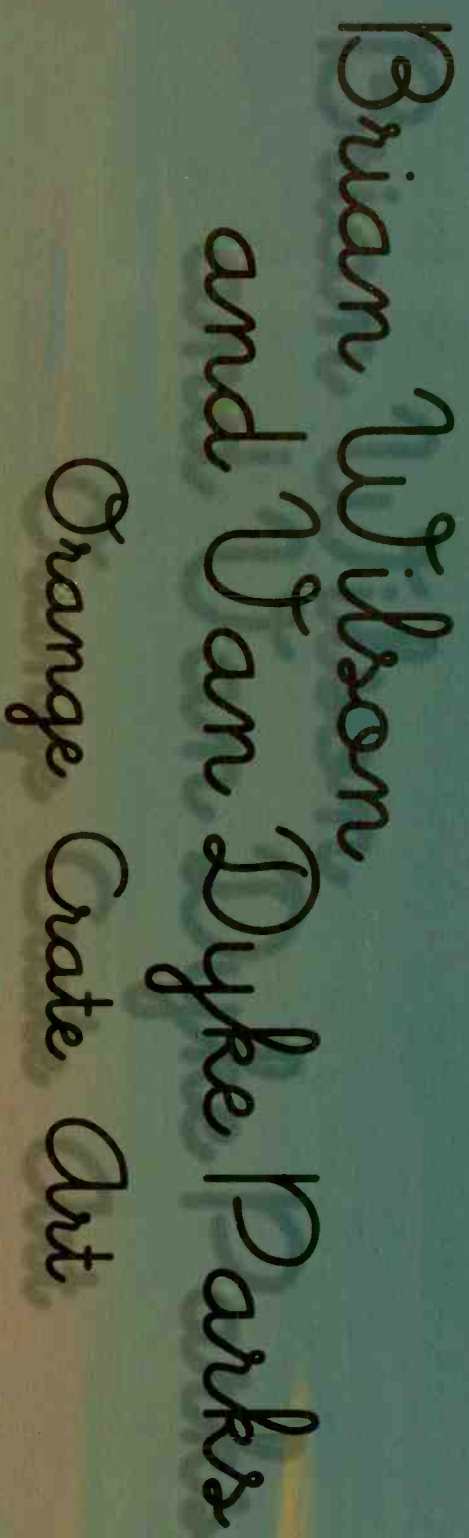 Brian Wilson
and Van Dyke Parks
Orange Crate Art